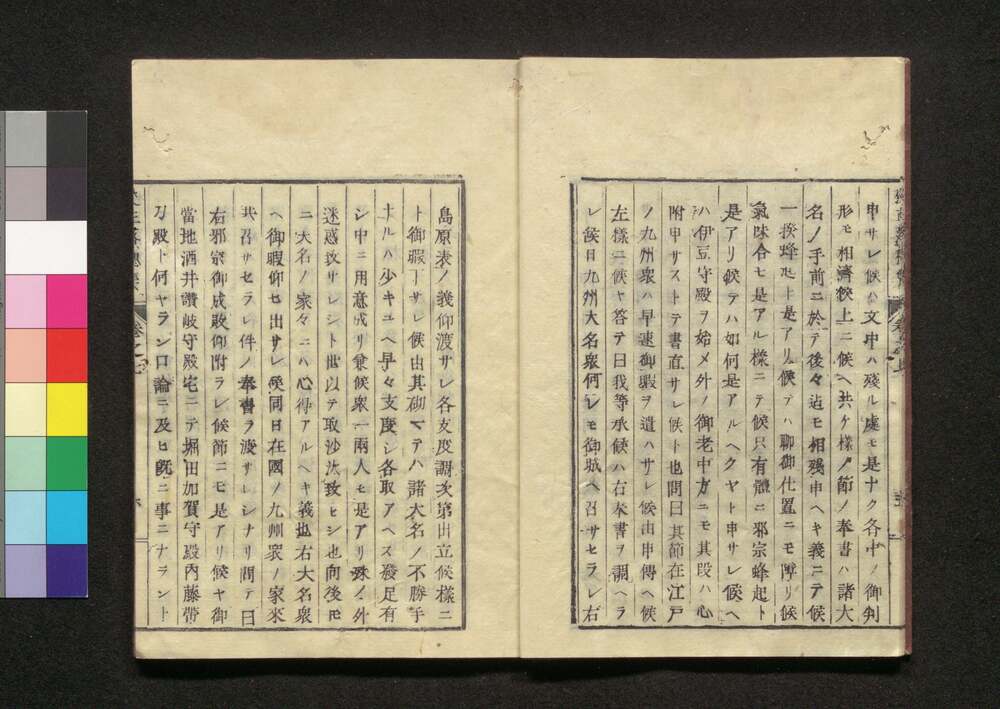 申サレ候ハ文中ハ殘ル處モ是ナク各中ノ御判
形モ相濟候上ニ候ヘ共ケ樣ノ節ノ奉書ハ諸大
名ノ手前ニ於テ後々迠モ相殘申ヘキ義ニテ候
一揆蜂起ト是アリ候テハ聊御仕置ニモ障リ候
氣味合モ是アル樣ニテ候只有體ニ邪宗蜂起ト
是アリ候テハ如何是アルヘクヤト申サレ候ヘ
ハ伊豆守殿ヲ始メ外ノ御老中方ニモ其段ハ心
附申サストテ書直サレ候ト也問曰其節在江戸
ノ九州衆ハ早速御暇ヲ遣ハサレ候由申傳ヘ候
左樣ニ候ヤ答テ曰我等承候ハ右奉書ヲ調ヘラ
レ候日九州大名衆何レモ御城ヘ召サセラレ右
島原表ノ義仰渡サレ各支度調次第出立候樣ニ
ト御暇下サレ候由其砌マテハ諸大名ノ不勝手
ナルハ少キユヘ早々支度シ各取アヘス發足有
シ中ニ用意成リ兼候衆一兩人モ是アリ殊ノ外
迷惑致サレシト世以テ取沙汰致セシ也向後モ
ニ大名ノ家々ニハ心得アルヘキ義也右大名衆
ヘ御暇仰セ出サレ候同日在國ノ九州衆ノ家來
共召サセラレ件ノ奉書ヲ渡サレシナリ問テ曰
右邪宗御成敗仰附ラレ候節ニモ是アリ候ヤ御
當地酒井讚岐守殿宅ニテ堀田加賀守殿内藤帶
刀殿ト何ヤラン口論ニ及ヒ既ニ事ニナラント